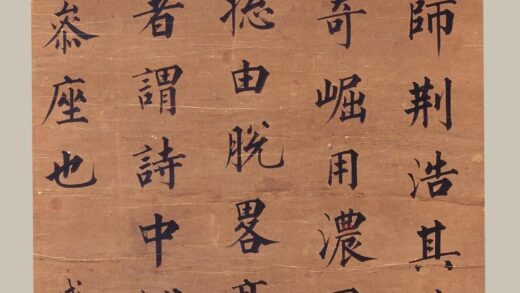 師荆浩其
奇崛用濃
總由脫畧
者謂詩中
叅座也